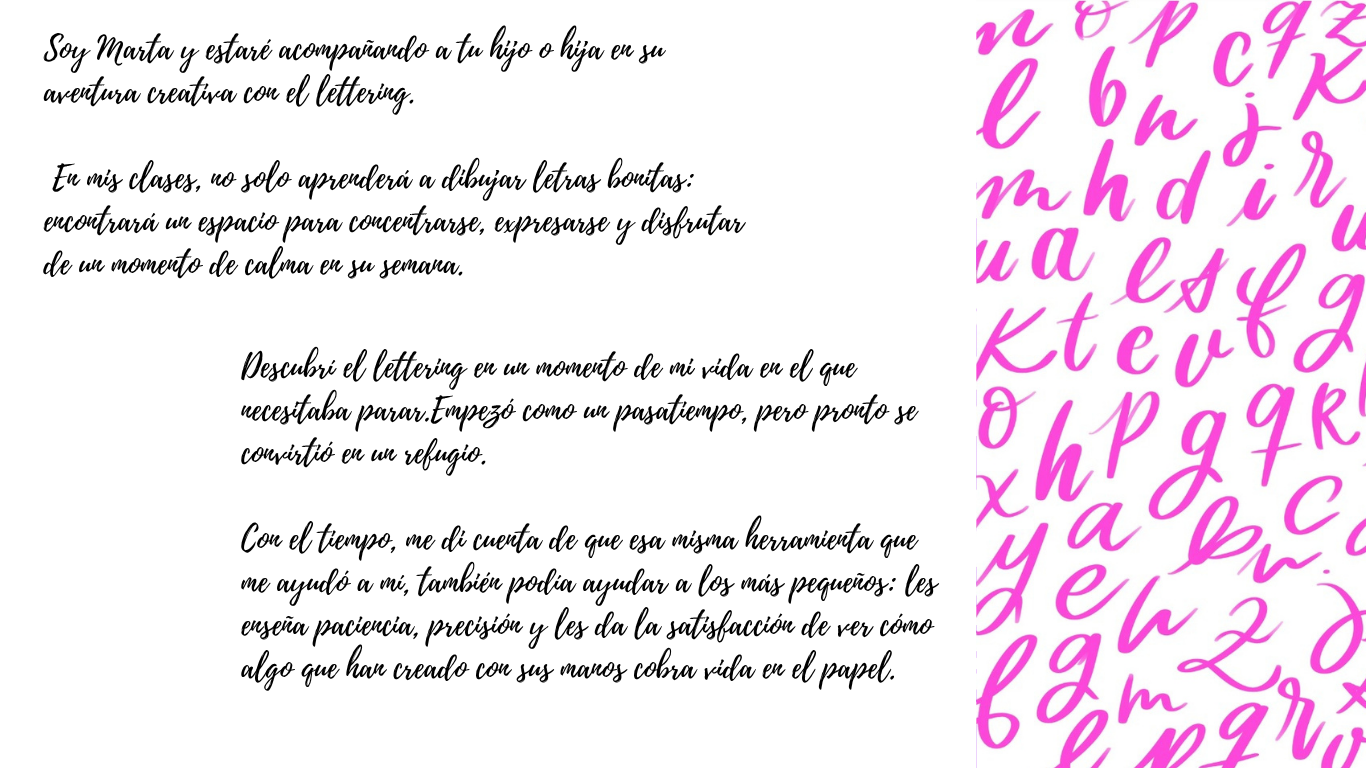 Soy Marta y estaré acompañando a tu hijo o hija en su
aventura creativa con el lettering.
En mis clases, no solo aprenderá a dibujar letras bonitas:
encontrará un espacio para concentrarse, expresarse y disfrutar
de un momento de calma en su semana.
Descubrí el lettering en un momento de mi vida en el que
necesitaba parar.Empezó como un pasatiempo, pero pronto se
convirtió en un refugio.
Con el tiempo, me di cuenta de que esa misma herramienta que
me ayudó a mí, también podía ayudar a los más pequeños: les
enseña paciencia, precisión y les da la satisfacción de ver cómo
algo que han creado con sus manos cobra vida en el papel.